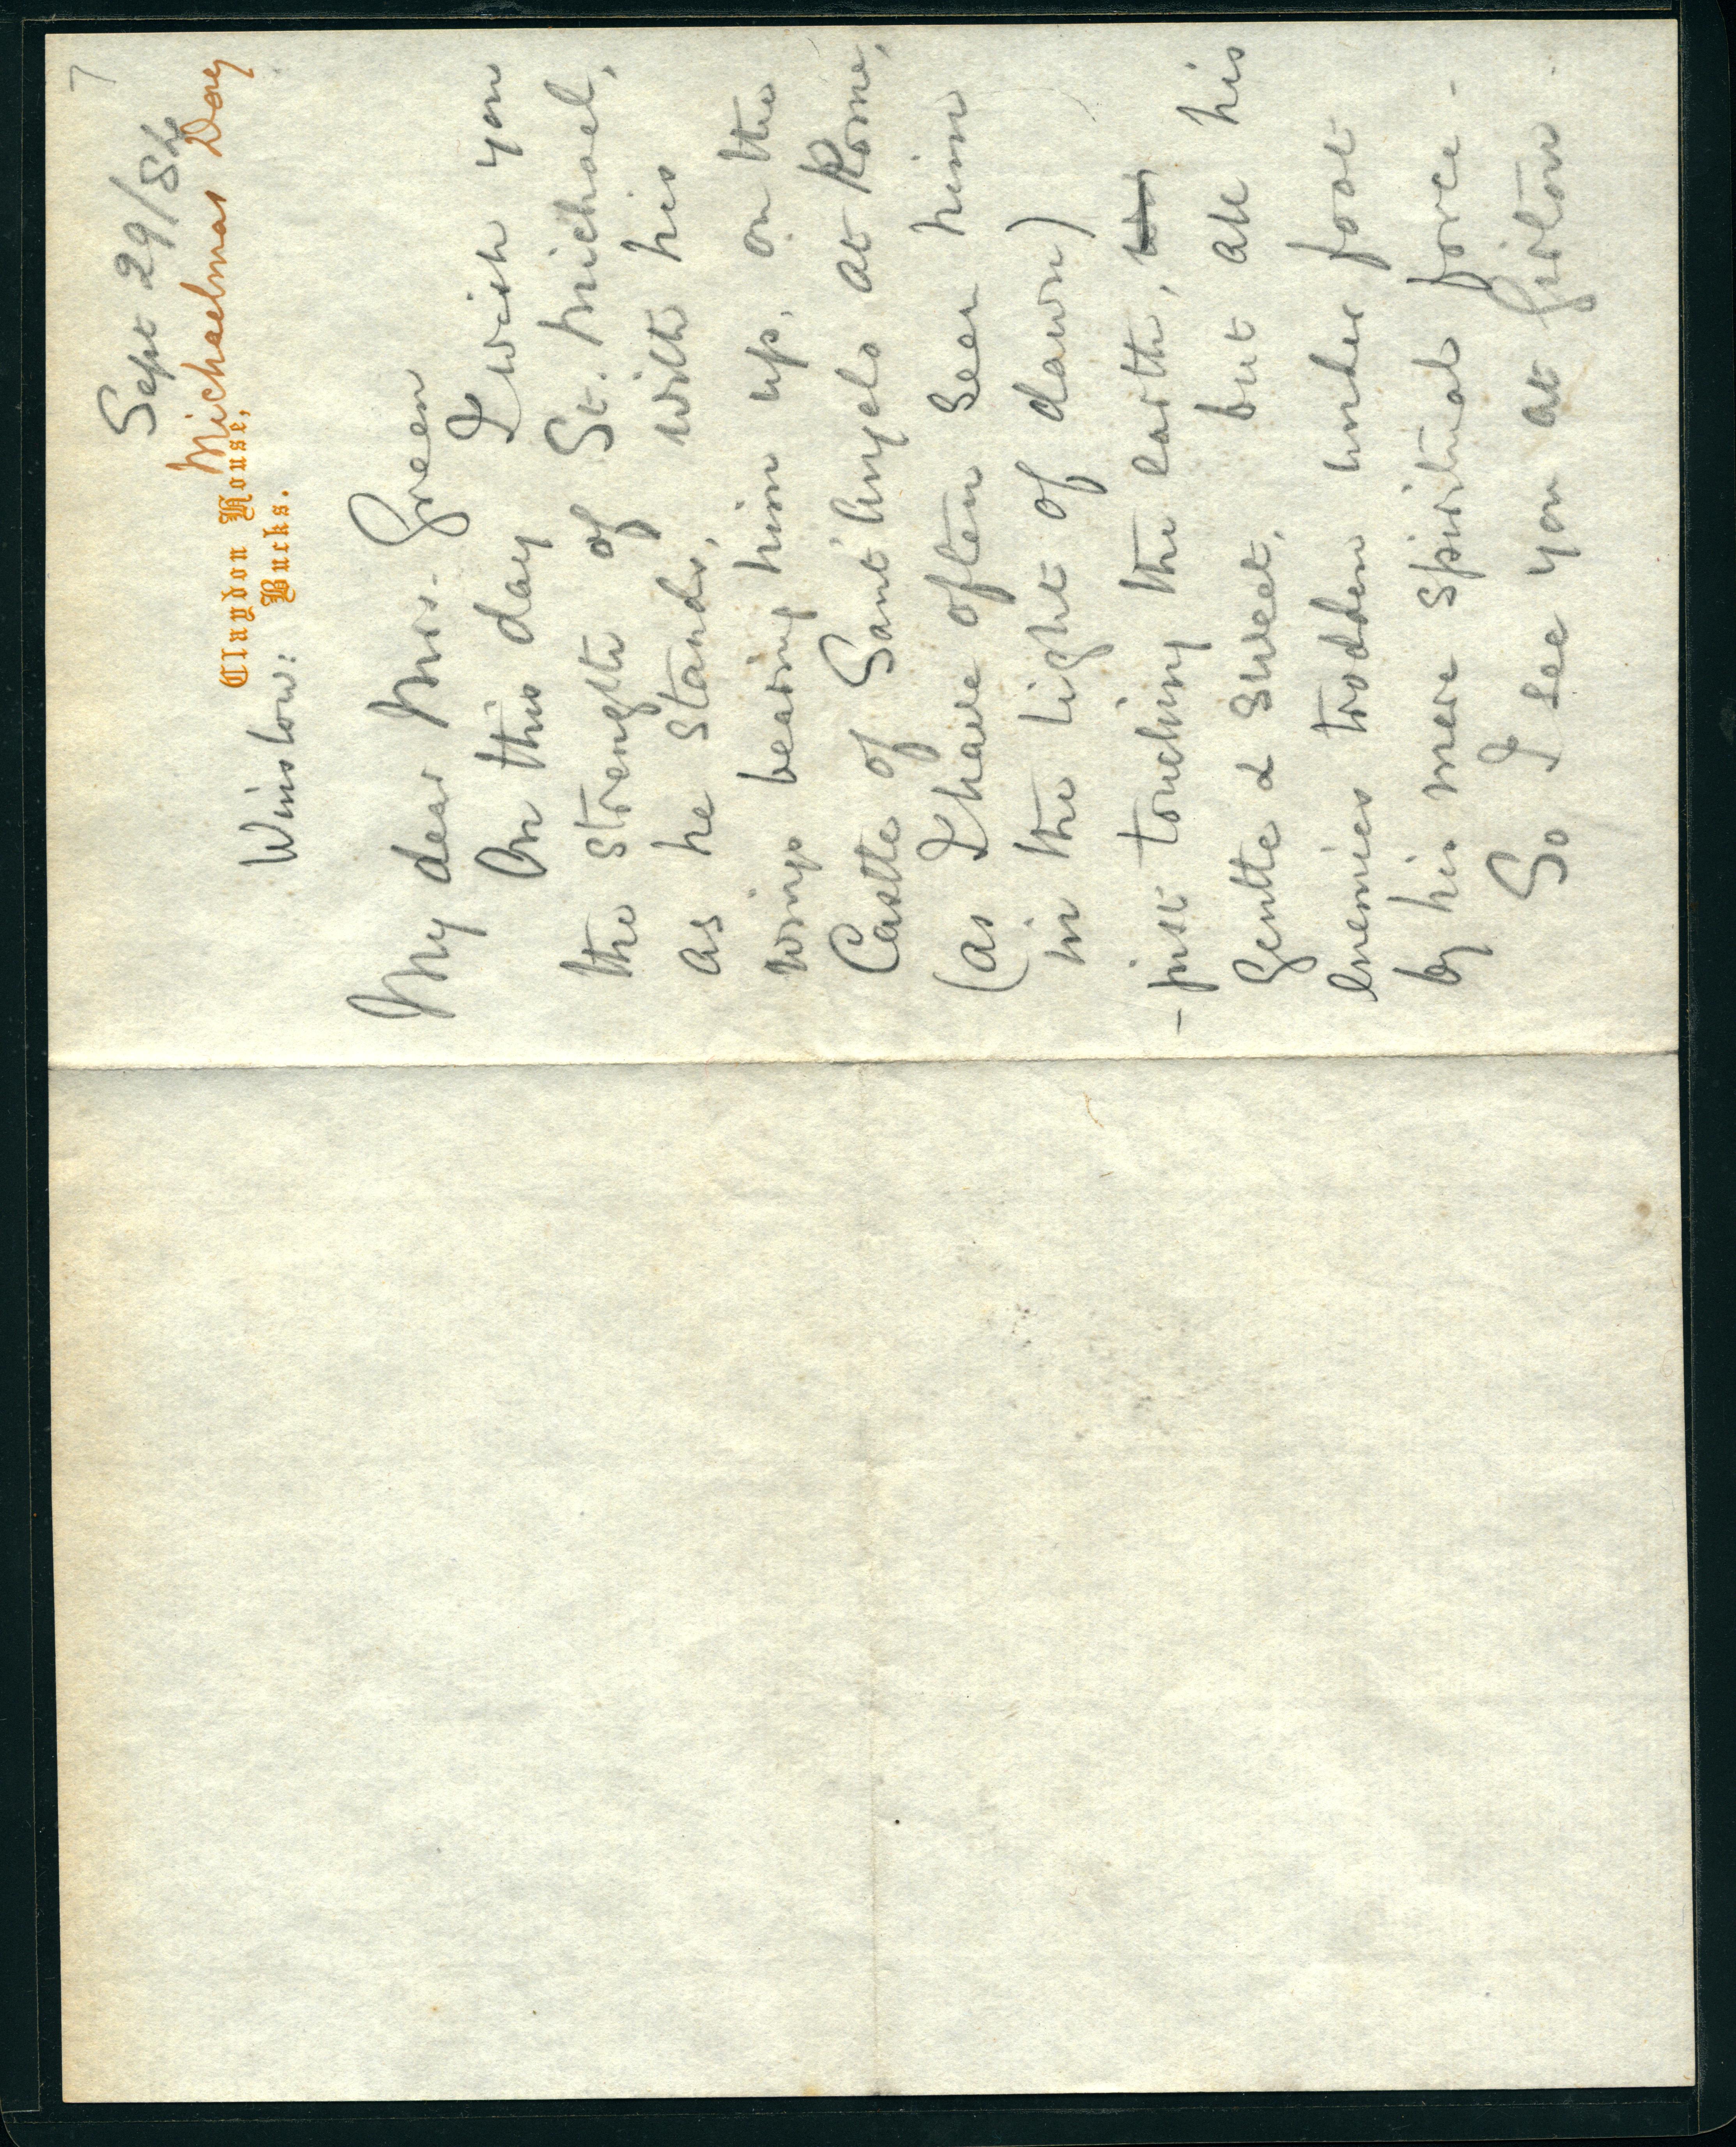 7
Sept 29/84
Michaelmas Day
Claydon House,
Bucks.
Winslow:
My dear Mrs. Green
On this day I wish you
the strength of St. Michael,
as he stands, with his
wings bearing him up, on the
Castle of Sant'Angelo at Rome,
(as I have often seen him
in the light of dawn)
- just touching the earth,
gentle & sweet, but all his
enemies trodden under foot
by his mere spiritual force -
So I see you at Girton.